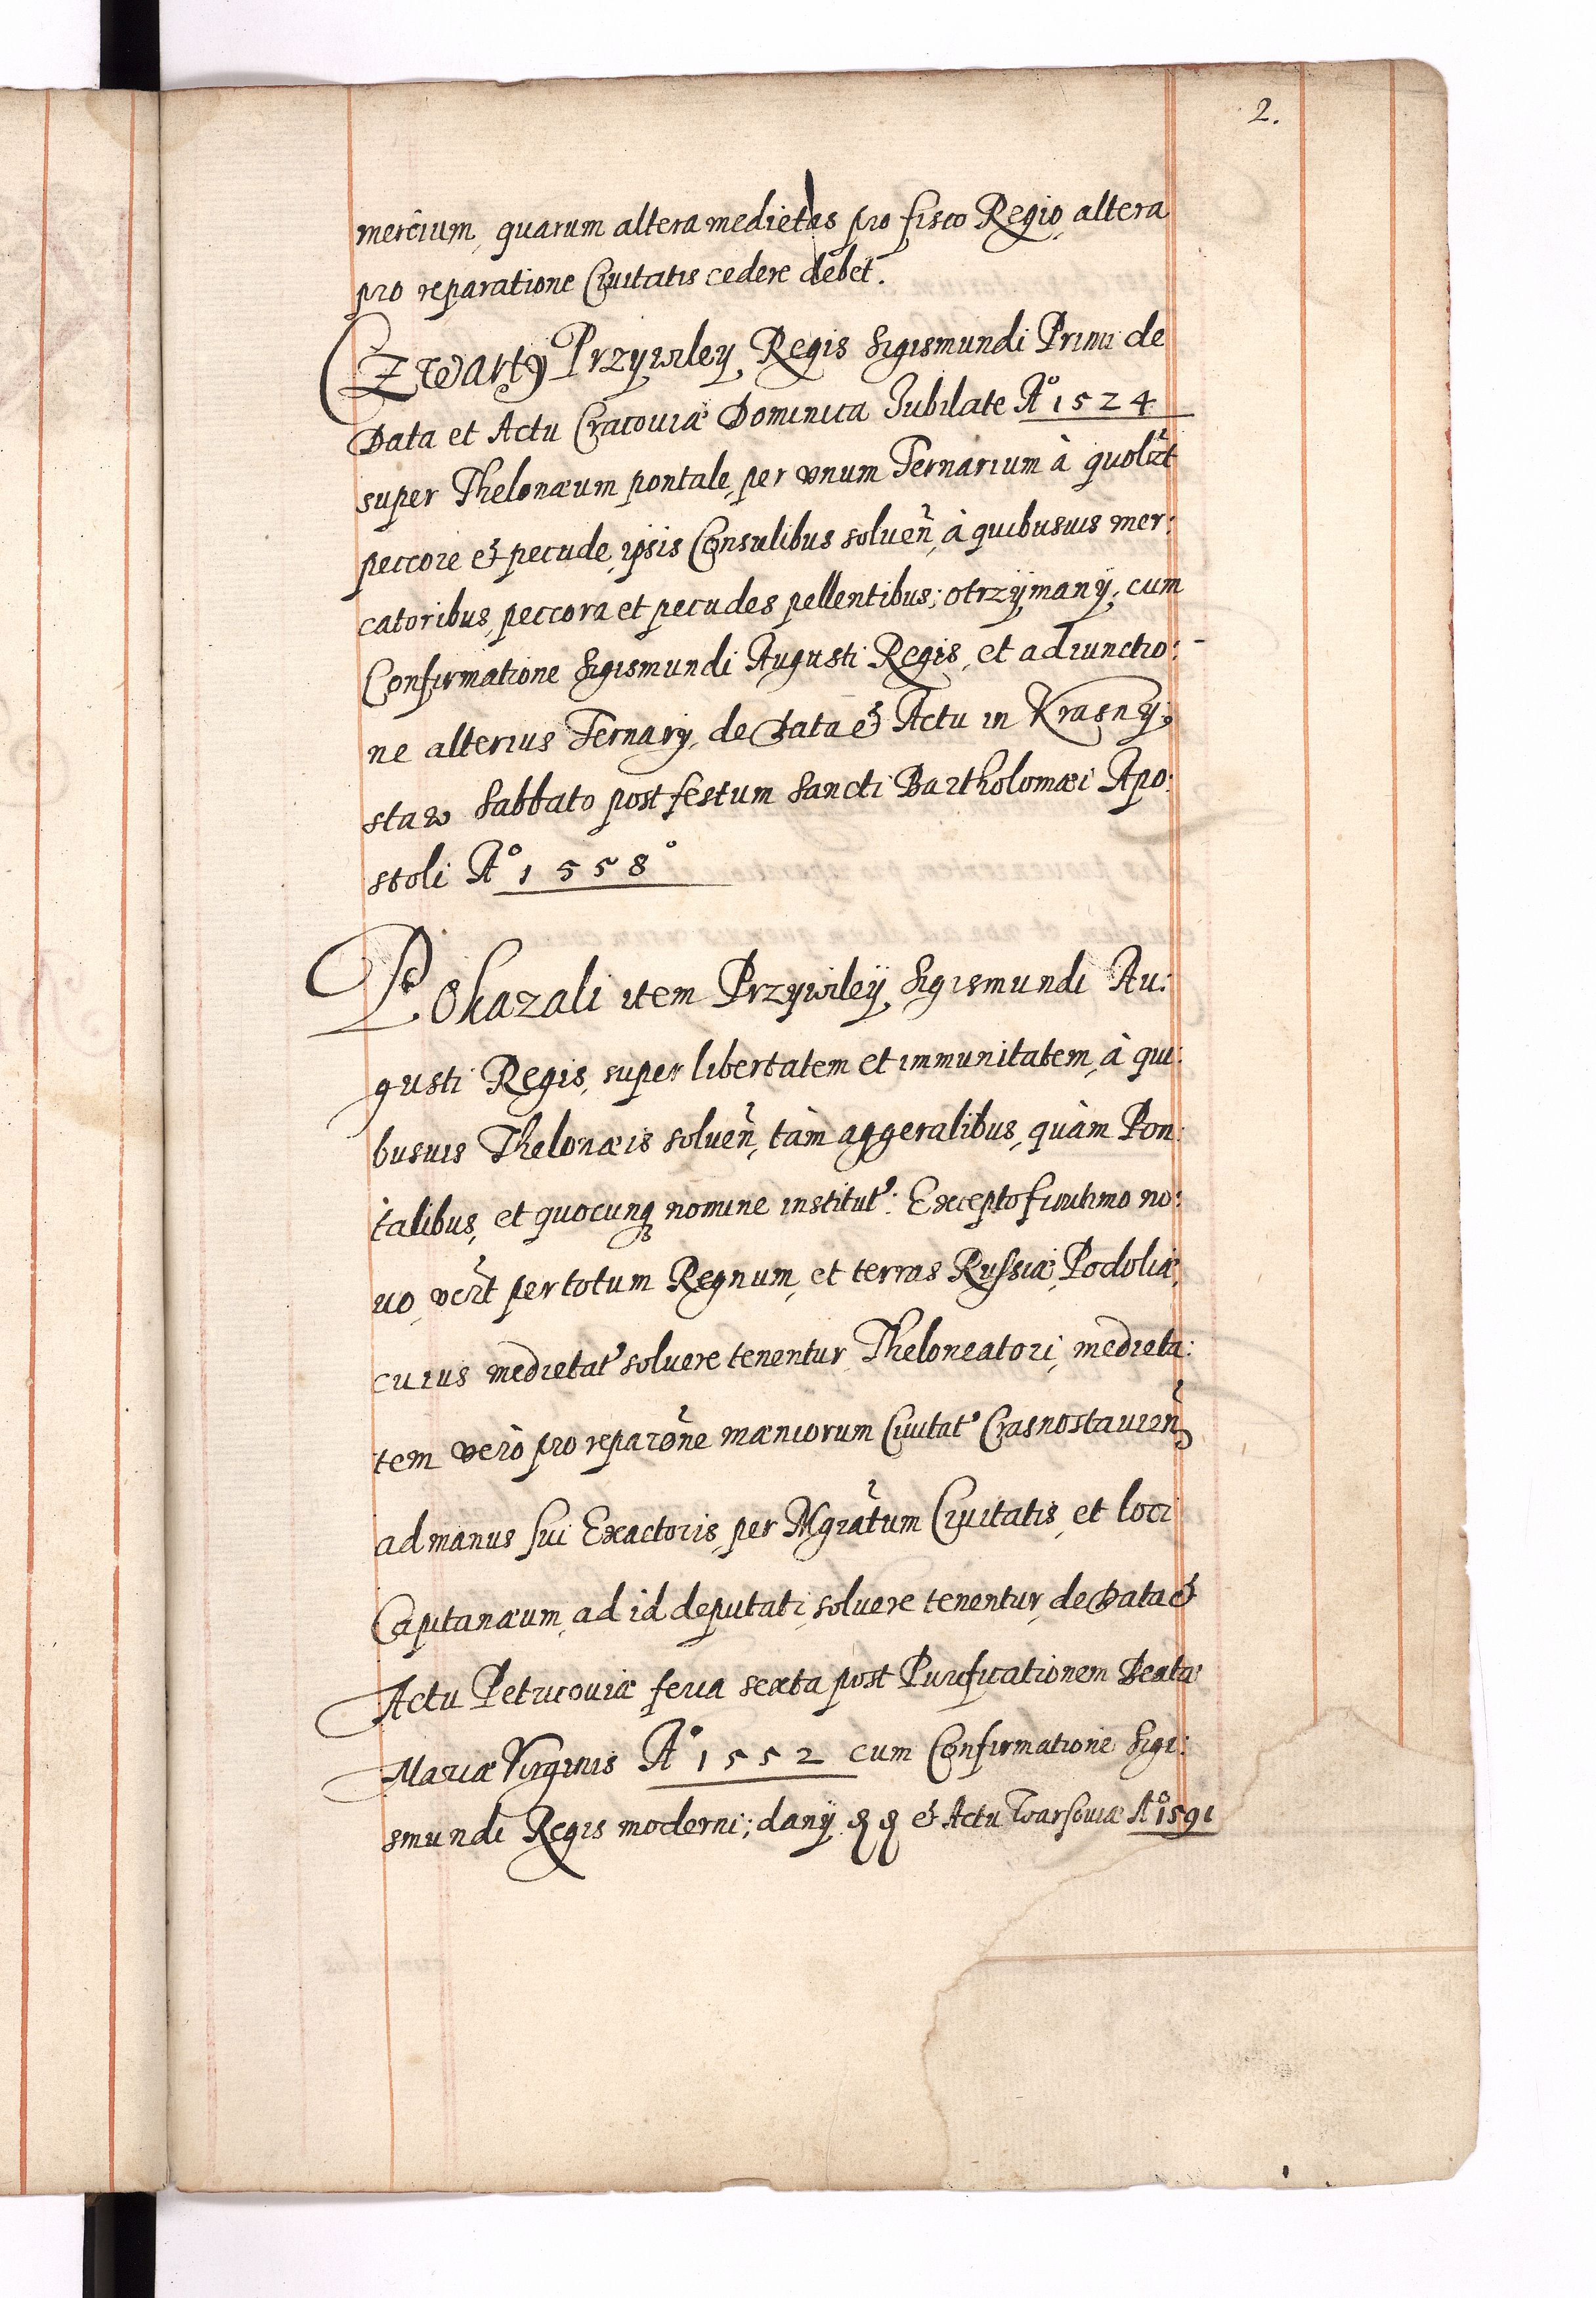 2.
mercium, quarum altera medietas pro fisco Regio, altera
pro reparatione Civitatis cedere debet.
Czwarty Przywiley Regis Sigismundi Primi de
Data et Actu Cracoviæ Dominica Iubilate A° 1524
super Thelonæum pontale, per vnum Ternarium à quolibt
peccore & pecude, ipsis Consulibus soluen̄, à quibusuis mer:
catoribus, peccora et pecudes pellentibus; otrzÿmanÿ, cum
Confirmatione Sigismundi Augusti Regis, et adiunctio:
ne alterius Ternarÿ, de Data & Actu in Krasnÿ,
staw Sabbato post festum Sancti Bartholomæi Apo:
stoli A° 1558°
Pokazali item Przywileÿ Sigismundi Au:
gusti Regis, super libertatem et immunitatem, à qui:
busuis Thelonæis soluen̄, tàm aggeralibus, quàm Pon:
talibus, et quocunq nomine institut: Excepto no:
uo, per totum Regnum, et terras Russiæ, Podoliæ,
cuius medietat soluere tenentur Theloneatori, medieta:
tem verò pro reparōne mæniorum Civitat Crasnostauien̄
ad manus sui Exactoris, per Mgratum Civitatis, et loci
Capitanæum, ad id deputati, soluere tenentur, de Data &
Actu Petricoviæ feria sexta post Purificationem Beatæ
Mariæ Virginis A° 1552 cum Confirmatione Sigi:
smundi Regis moderni; danÿ & Actu Warsoviæ A° 1591